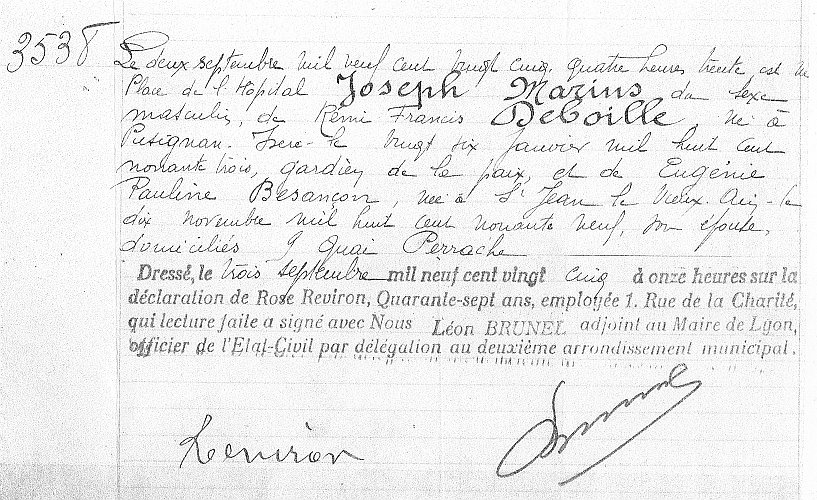 3538
Le deux septembre mil neuf cent vingt cinq, quatre heures trente, est né
Place de l'Hôpital Joseph Marius du sexe
masculin, de Rémi Francis Deboille, né à
Pusignan. Isère - le vingt six Janvier mil huit cent
nonante trois, gardien de la paix, et de Eugénie
Pauline Besançon, née à St Jean le Vieux. Ain - le
dix novembre mil huit cent nonante neuf, son épouse,
domiciliés 9 Quai Perrache
Dressé, le trois septembre mil neuf cent vingt cinq à onze heures sur la
déclaration de Rose Reviron, Quarante-sept ans, employée 1. Rue de la Charité,
qui lecture faite a signé avec Nous Léon BRUNEL adjoint au Maire de Lyon,
officier de l'Etat-Civil par délégation au deuxième arrondissement municipal.
Reviron